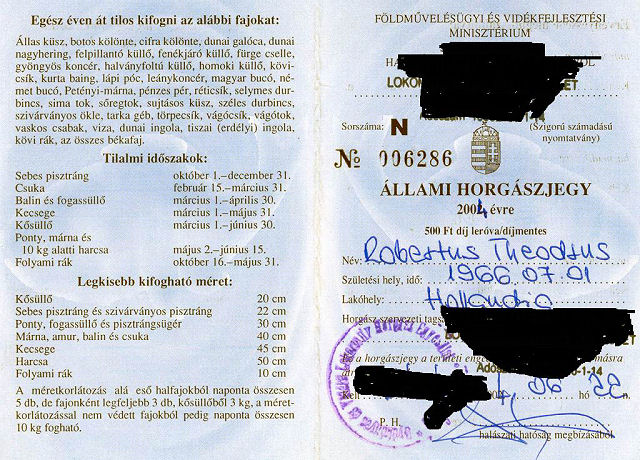 Egész éven át tilos kifogni az alábbi fajokat:
Állas küsz, botos kölönte, cifra kölönte, dunai galóca, dunai
nagyhering, felpillantó küllő, fenékjáró küllő, fürge cselle,
gyöngyös koncér, halványfoltú küllő, homoki küllő, kövi-
csík, kurta baing, lápi póc, leánykoncér, magyar bucó, né-
met bucó, Petényi-márna, pénzes pér, réticsík, selymes dur-
bincs, sima tok, sőregtok, sujtásos küsz, széles durbincs,
szivárványos ökle, tarka géb, törpecsík, vágócsík, vágótok,
vaskos csabak, viza, dunai ingola, tiszai (erdélyi) ingola,
kövi rák, az összes békafaj.
Tilalmi időszakok:
Sebes pisztráng október 1.–december 31.
Csuka február 15.–március 31.
Balin és fogassüllő március 1.–április 30.
Kecsege március 1.–május 31.
Kősüllő március 1.–június 30.
Ponty, márna és
10 kg alatti harcsa május 2.–június 15.
Folyami rák október 16.–május 31.
Legkisebb kifogható méret:
Kősüllő 20 cm
Sebes pisztráng és szivárványos pisztráng 22 cm
Ponty, fogassüllő és pisztrángsügér 30 cm
Márna, amur, balin és csuka 40 cm
Kecsege 45 cm
Harcsa 50 cm
Folyami rák 10 cm
A méretkorlátozás alá eső halfajokból naponta összesen
5 db, de fajonként legfeljebb 3 db, kősüllőből 3 kg, a méret-
korlátozással nem védett fajokból pedig naponta összesen
10 kg fogható.
FÖLDMŰVELÉSÜGYI ÉS VIDÉKFEJLESZTÉSI
MINISZTÉRIUM
Sorszáma: N (Szigorú számadású
nyomtatvány)
№ 006286
ÁLLAMI HORGÁSZJEGY
2004 évre
500 Ft díj leróva/díjmentes
Név: Robertus Theodsus
Születési hely, idő: 1966 07.01
Lakóhely: Hollandia
Horgász szervezeti tags
Ez a horgászjegy a területi enge
Kelt 06 hó 22 n.
P. H.
halászati hatóság megbízásából